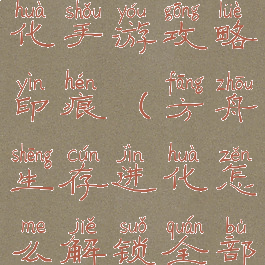 huà shǒu yóu gōng lüè
化手游攻略
yìn hén fāng zhōu
印痕(方舟
shēng cún jìn huà zěn
生存进化怎
me jiě suǒ quán bù
么解锁全部